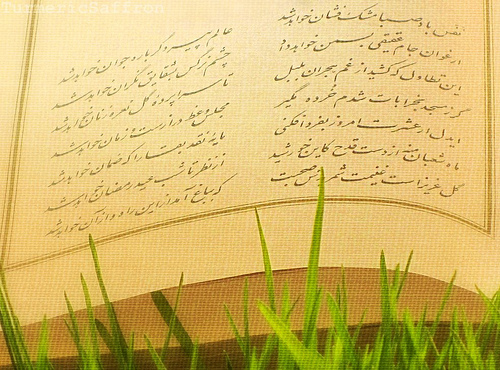 TurmericSaffron
نفس باد صبا مشک فشان خواهد شد
عالم پیر دگر باره جوان خواهد شد
ارغوان جام عقیقی بسمن خواهد داد
چشم نرگس بشقایق نگران خواهد شد
این تطاول که کشید از غم هجران بلبل
تا سراپرده گل نعره زنان خواهد شد
گر ز مسجد بخرابات شدم خرده مگیر
مجلس وعظ دراز است و زمان خواهد شد
ایدل ار عشرت امروز بفردا فکنی
مایه نقد بقا را که ضمان خواهد شد
ماه شعبان منه از دست قدح کاین خورشید
از نظر تا شب عید رمضان خواهد شد
گل عزیز است غنیمت شمریدش صحبت
که بباغ آمد از این راه و از آن خواهد شد